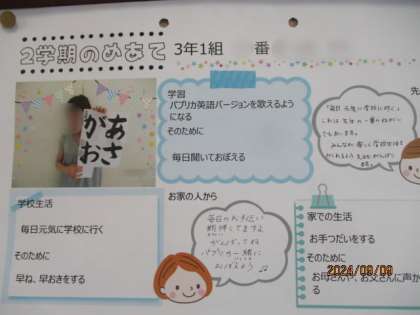 2学期のめあて 3年1組 番
あさ
がお
学習
パプリカ英語バージョンを歌えるよう
になる
そのために
毎日聞いておぼえる
先
「毎日元気に学校に行く」
学校生活
毎日元気に学校に行く
そのために
早ね、早おきをする
お家の人から
毎日のお手伝い
期待してますよ
がんばってね
パプリカ一緒に
おぼえよう♪
家での生活
お手つだいをする
そのために
お母さんや、お父さんに声か
る
2024/09/09